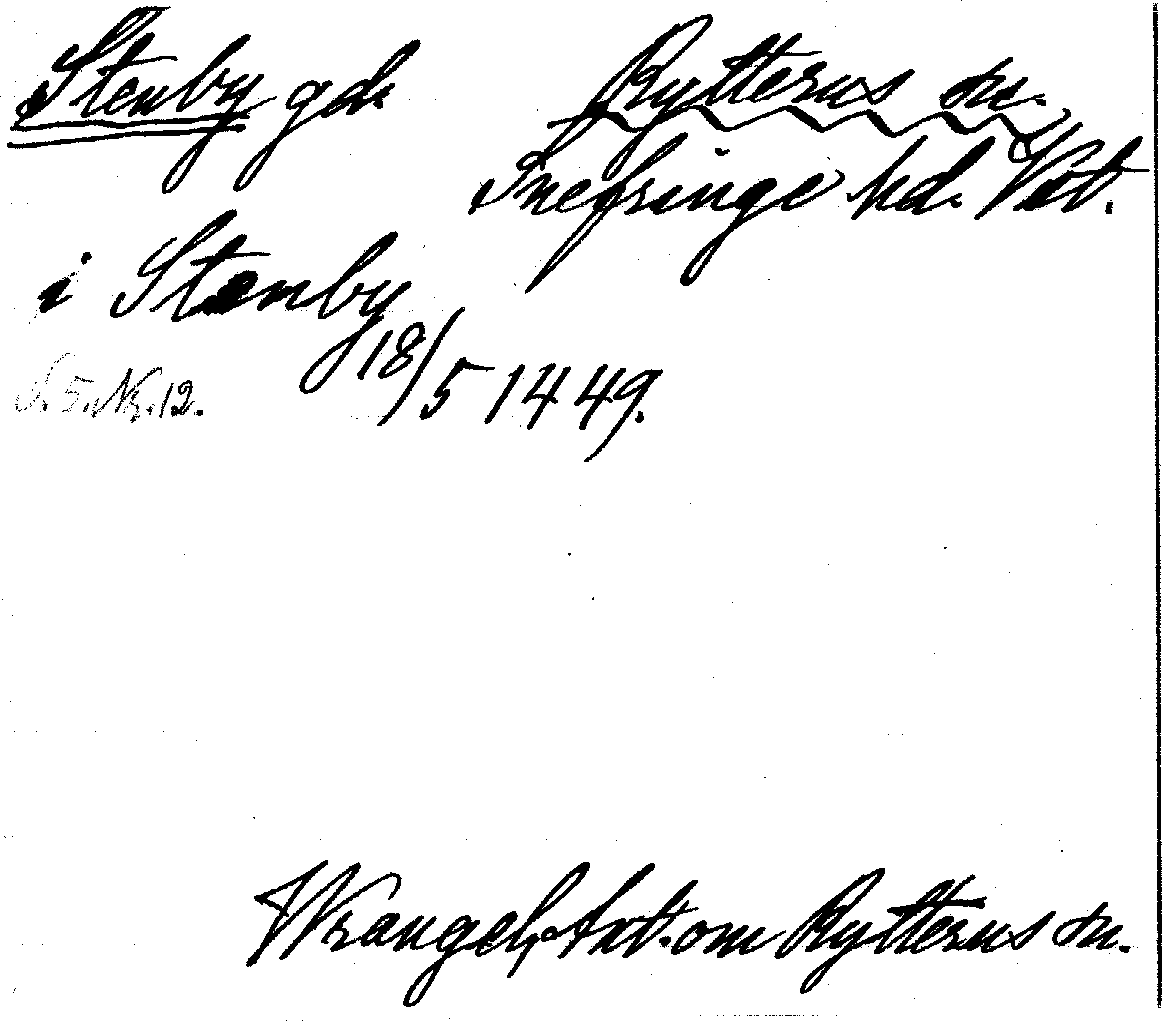 Stenby gd. Rytterus sn.
Snefringe hd. Vstl.
i Stenby
18/5 1449.
S. 5. Nr. 12.
Wrangel, Ant. om Rytterus sn.